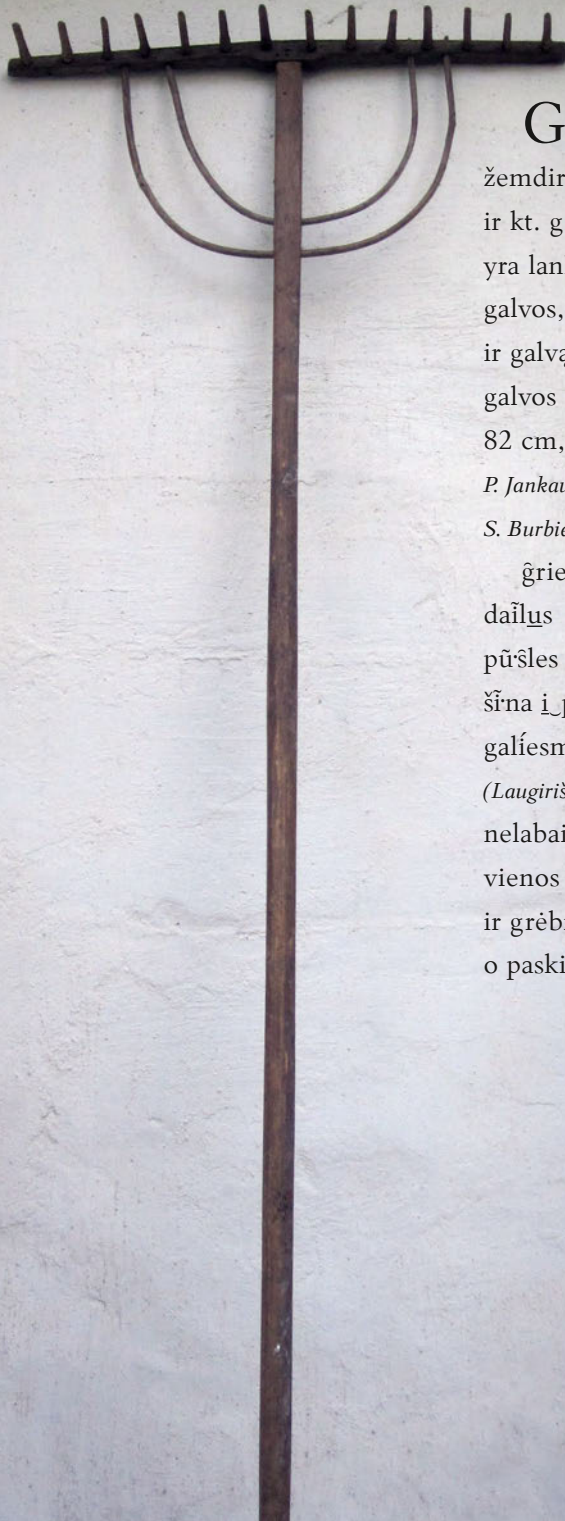 G
žemdir
ir kt. g
yra lan
galvos,
ir galvą
galvos
82 cm,
P. Jankau
S. Burbie
g̑rie
dai̇̃lu̲s
pũ·s̑les
šĩ·na i̲‿p
galíesm
(Laugiriš
nelabai
vienos
ir grėbi
o paski